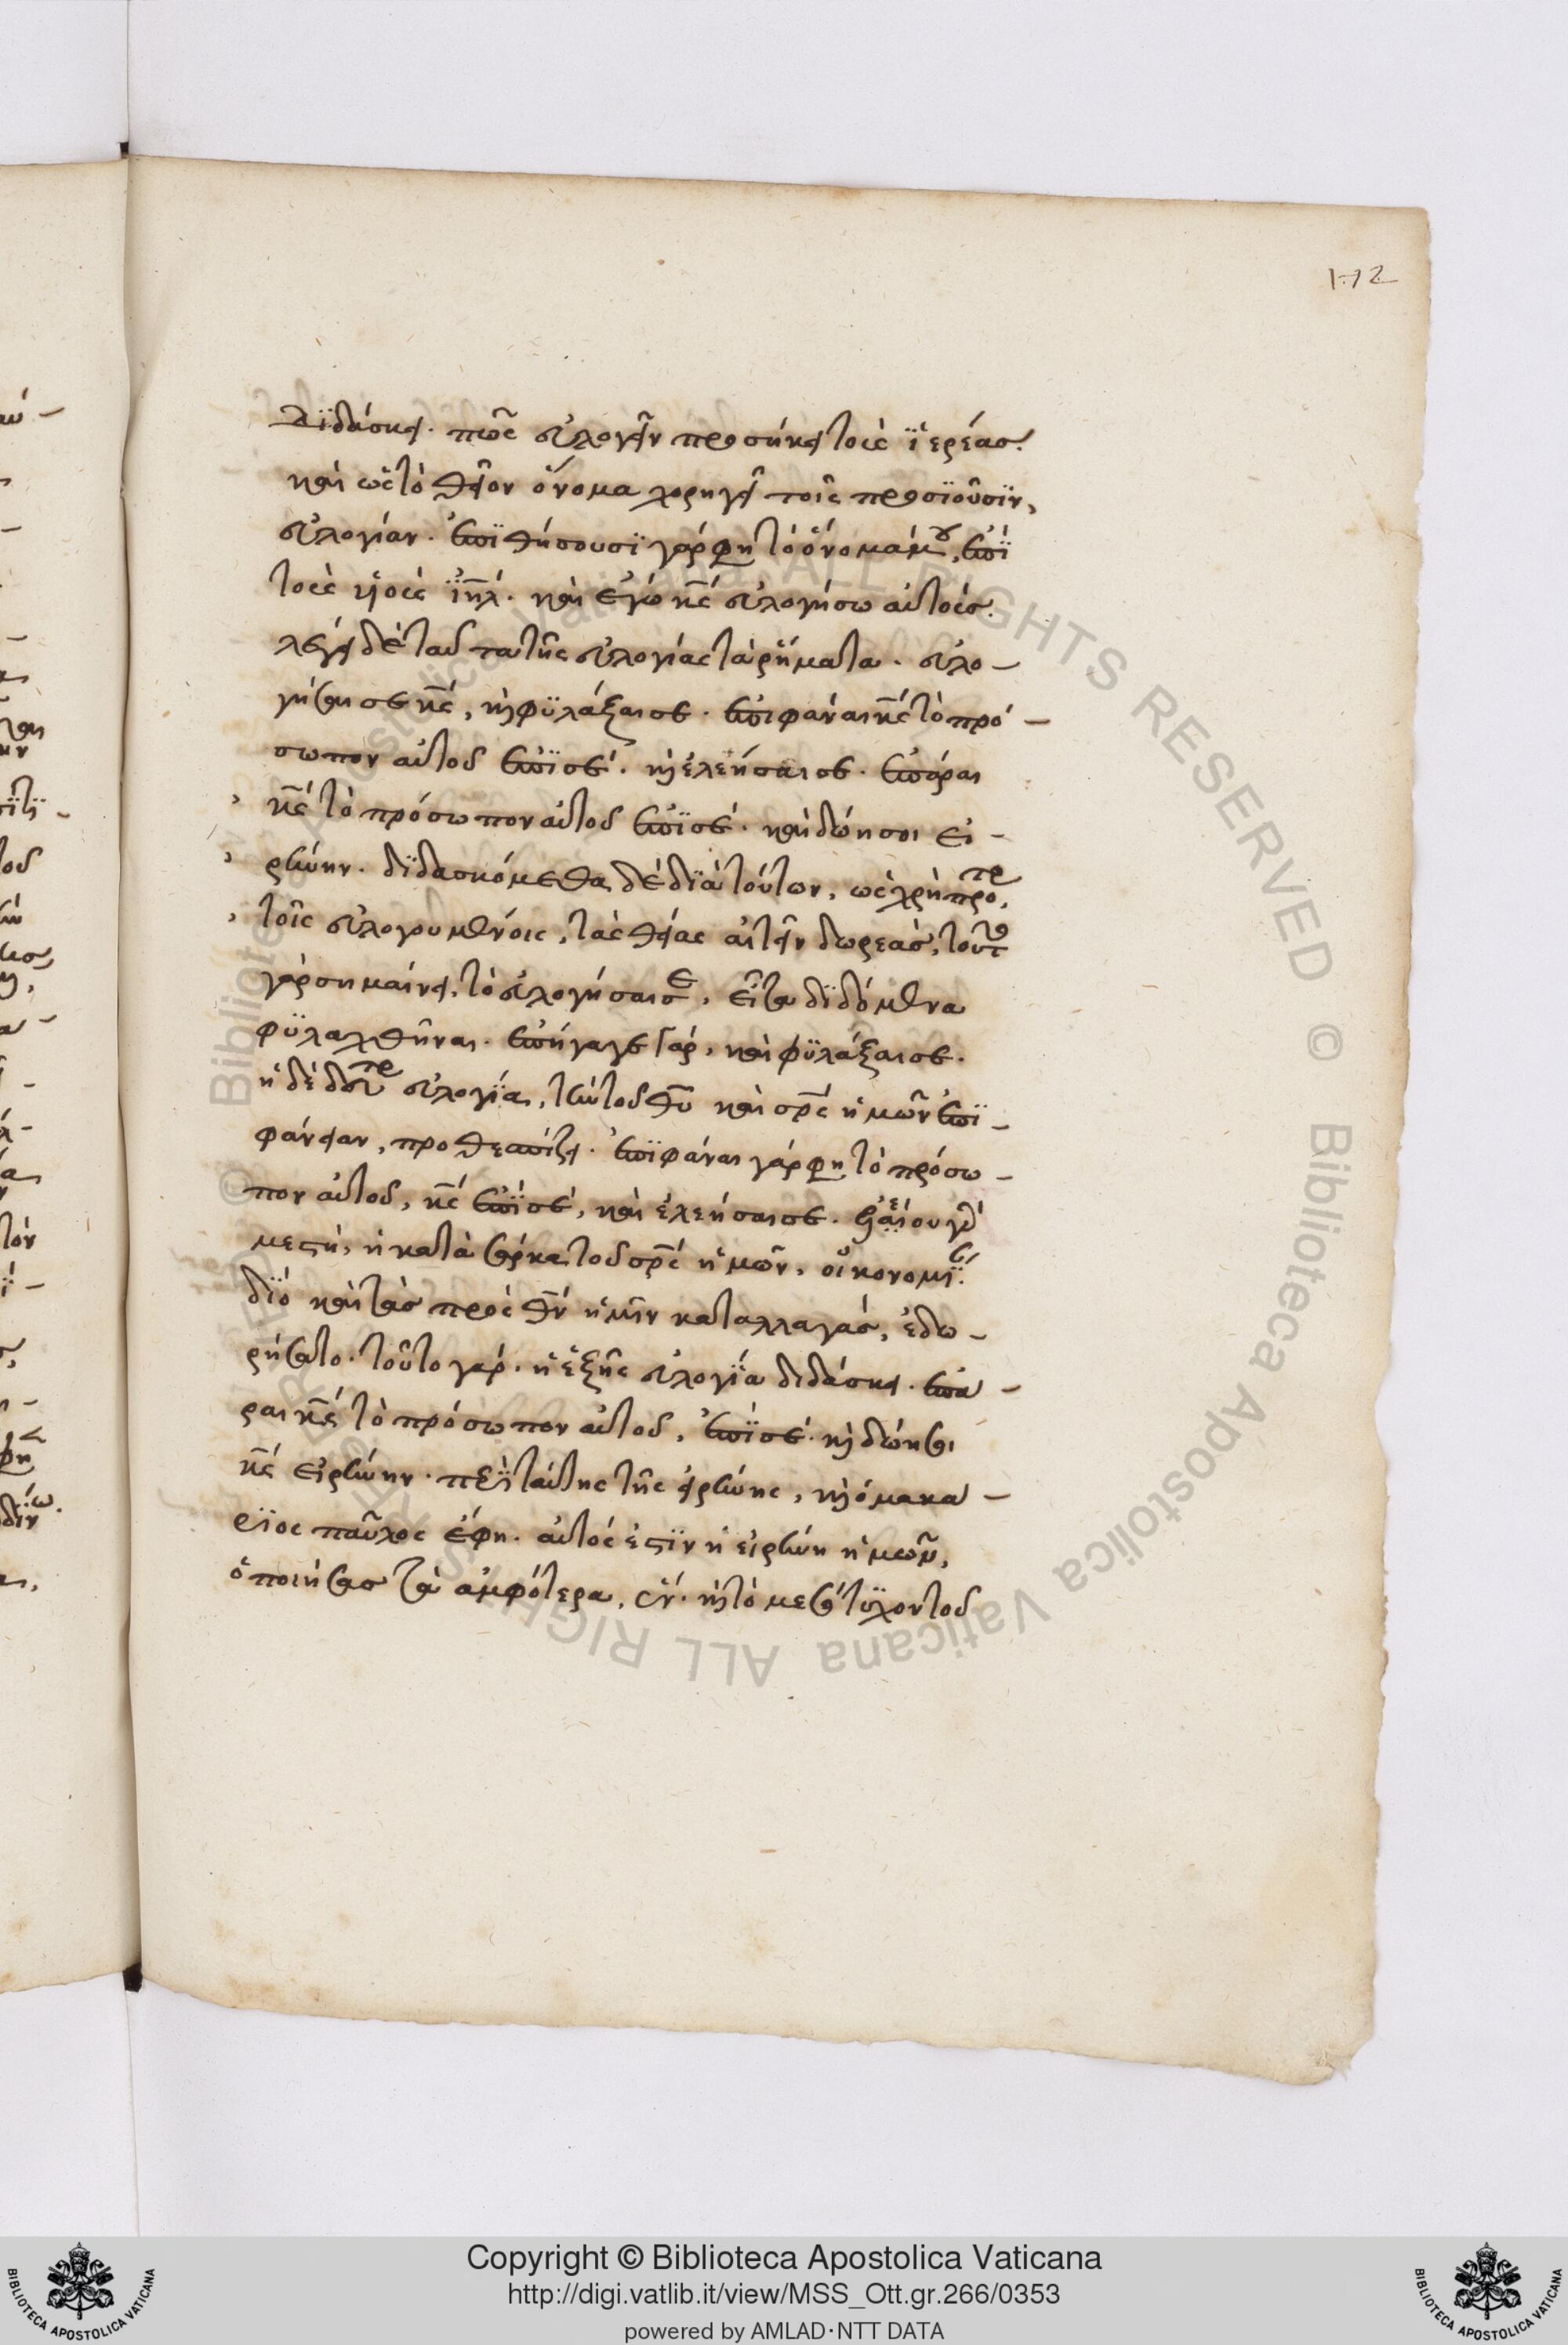 172
Διδάσκει· πῶς εὐλογεῖν προσήκει τοὺς ἱερέας.
καὶ ὡς τὸ θεῖον ὄνομα χορηγεῖ τοῖς προσϊοῦσϊν,
εὐλογίαν· ἐπϊθήσουσϊ γάρ φη τὸ ὄνομά μου, ἐπῒ
τοὺς υἱοὺς ϊηλ· καὶ ἐγὼ κς εὐλογήσω αὐτούς.
λέγει δὲ ταῦτα τῆς εὐλογίας τὰ ῥήματα· εὐλο-
γήσαι σε κς, κὶ φϋλάξαι σε· ἐπιφάναι κς τὸ πρό-
σωπον αὐτοῦ ἐπῒ σέ· κὶ ἐλεήσαι σε· ἐπάραι
κς τὸ πρόσωπον αὐτοῦ ἐπῒ σέ· καὶ δώη σοι εἰ-
ρήνην· δϊδασκόμεθα δὲ δϊὰ τούτων, ὡς χρὴ προτε,
τοῖς εὐλογουμένοις, τὰς θείας αἰτεῖν δωρεάς, τοῦτο
γὰρ σημαίνει, τὸ εὐλογήσαι σε, εἶτα δϊδόμενα
φϋλαχθῆναι· ἐπήγαγε γάρ, καὶ φϋλάξαι σε·
ἡ δὲ δευτε εὐλογία, τὴν τοῦ θυ καὶ σρς ἡμῶν ἐπϊ-
φάνειαν, προθεσπίζει· ἐπϊφάναι γάρ φη τὸ πρόσω-
πον αὐτοῦ, κς ἐπῒ σέ, καὶ ἐλεήσαι σε·
μεστή, ἡ κατὰ σάρκα τοῦ σρς ἡμῶν, οἰκονομϊ
δϊὸ καὶ τὰς πρὸς θν ἡμῖν καταλλαγάς, ἐδω-
ρήσατο· τοῦτο γάρ· ἡ ἑξῆς εὐλογία διδάσκει· ἐπά-
ραι κς τὸ πρόσωπον αὐτοῦ, ἐπῒ σέ· κὶ δώη σοι
κς εἰρήνην· περὶ ταύτης τῆς εἰρήνης, κὶ ὁ μακα-
ρϊος παῦλος ἔφη· αὐτός ἐστϊν ἡ εἰρήνη ἡμῶν,
ὁ ποιήσας τὰ ἀμφότερα, ἕν· κὶ τὸ μεσότϋχον τοῦ
Copyright © Biblioteca Apostolica Vaticana
http://digi.vatlib.it/view/MSS_Ott.gr.266/0353
powered by AMLAD·NTT DATA